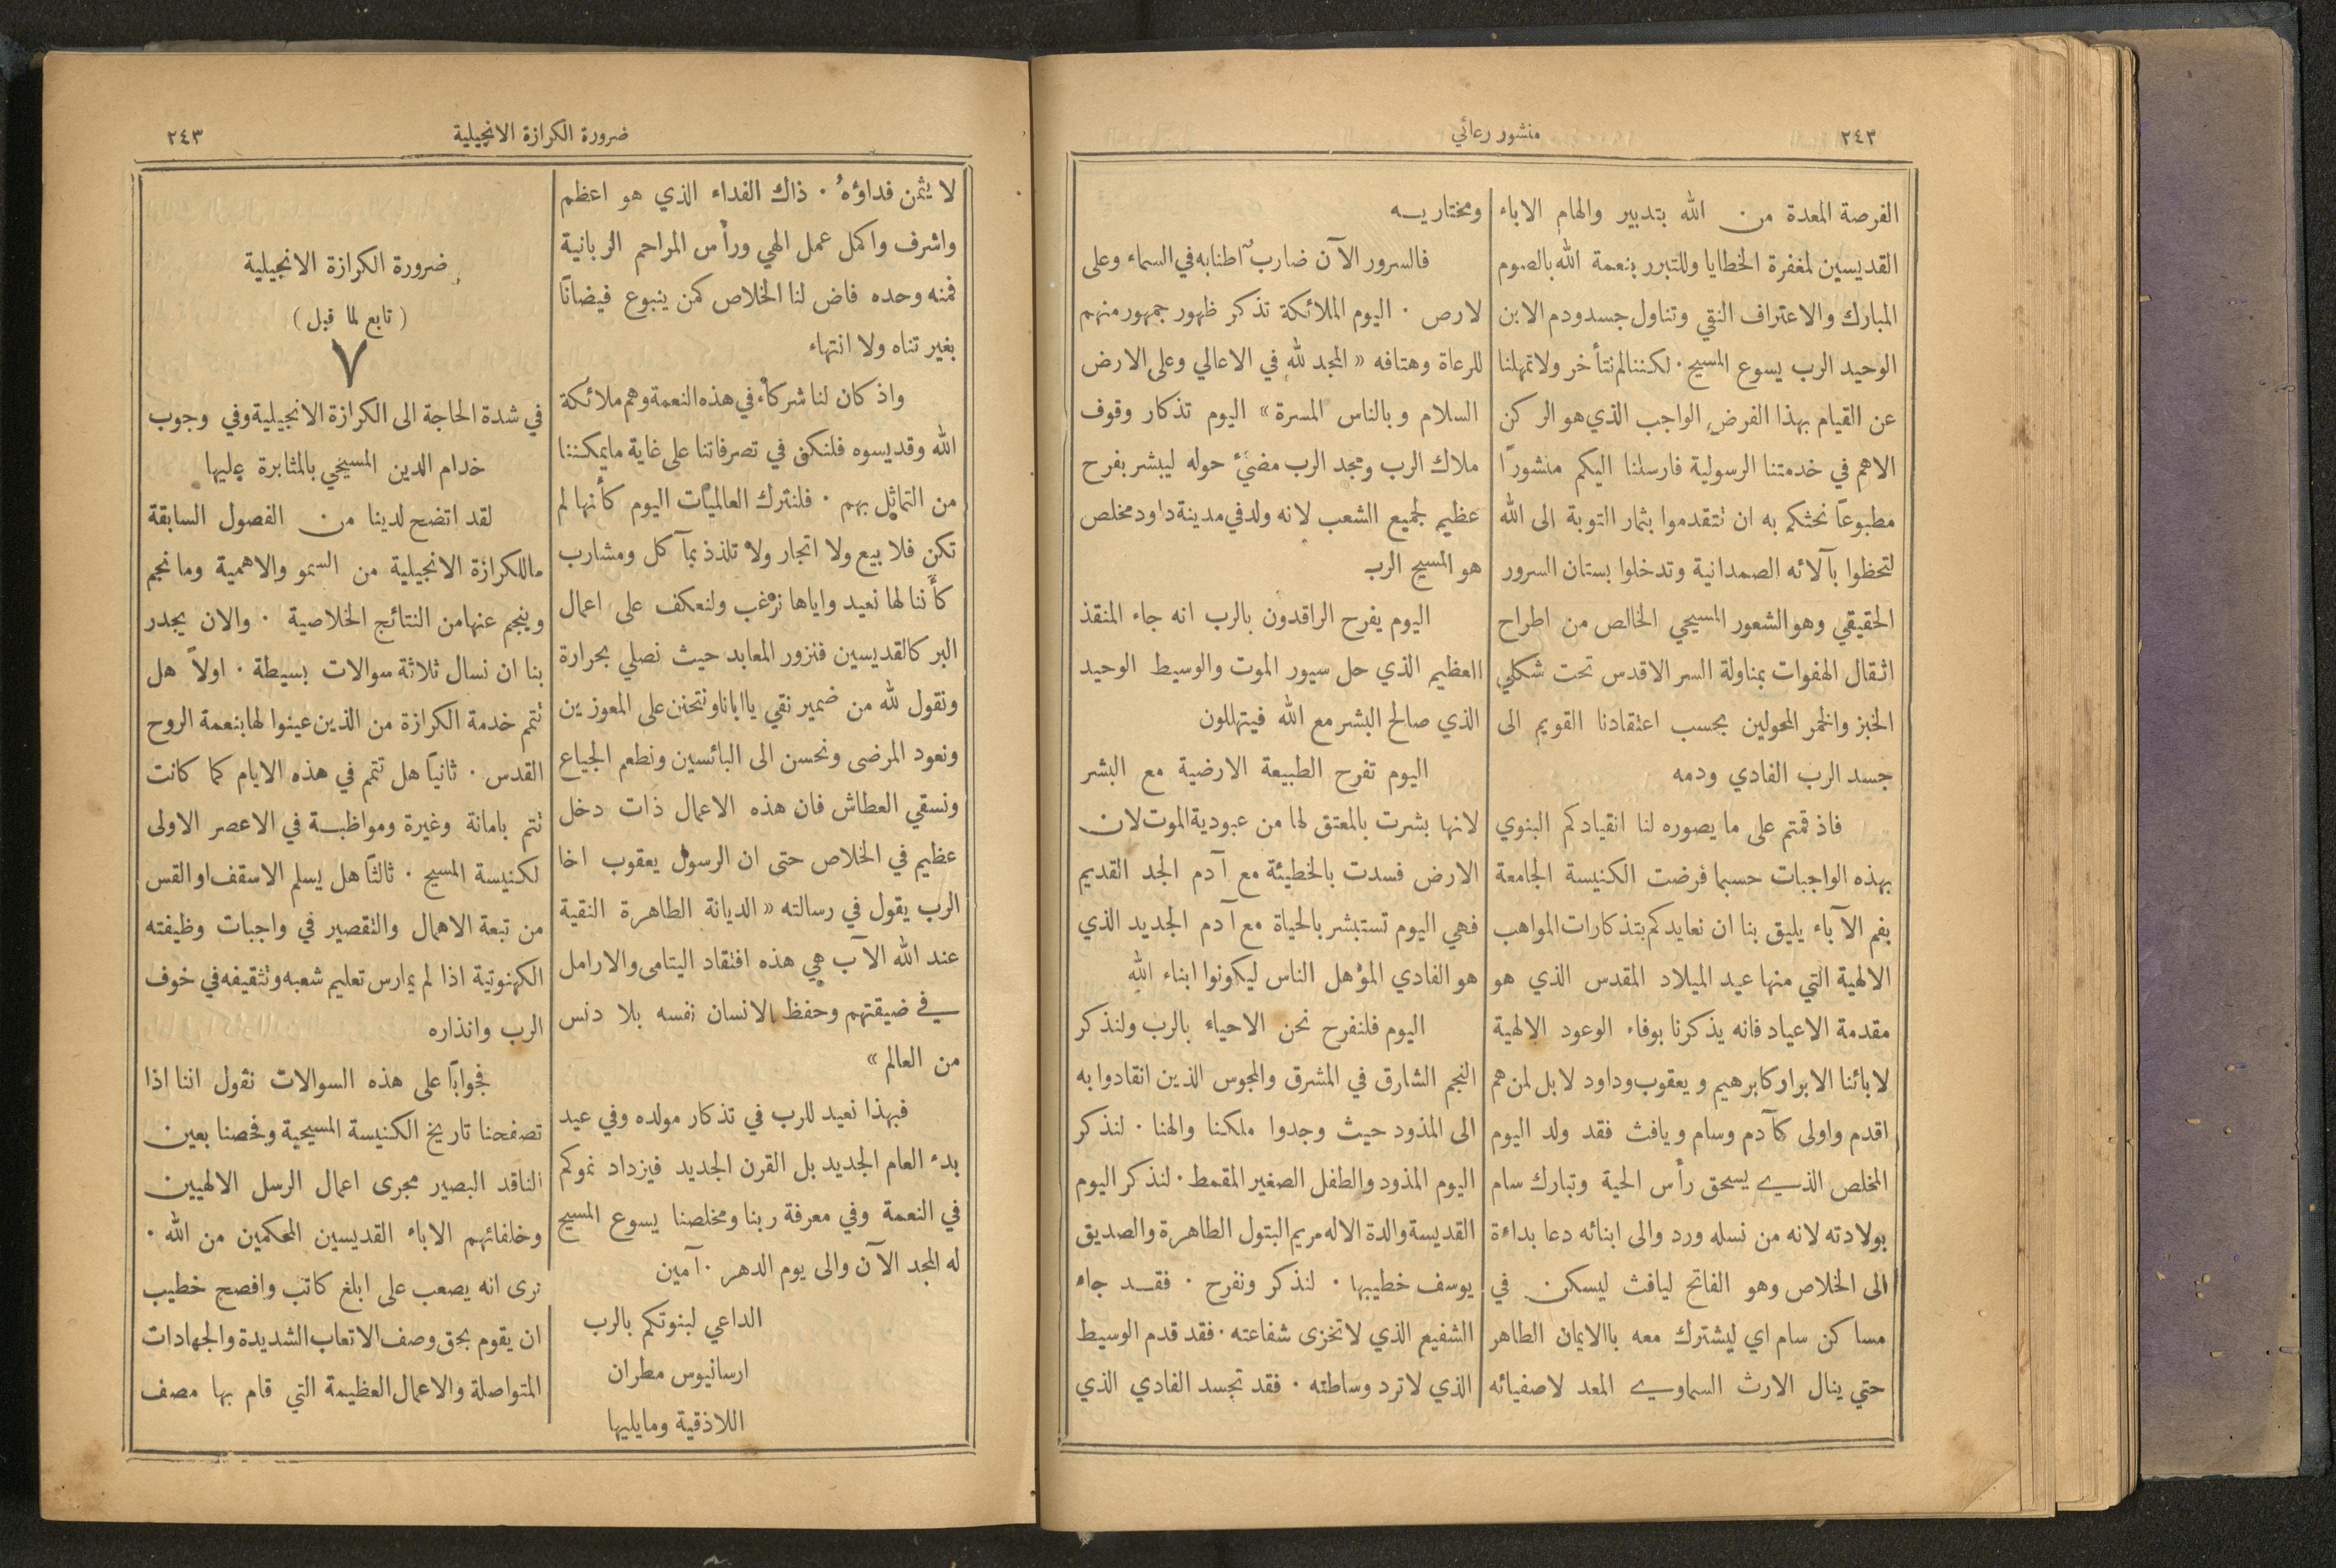 ٢٤٣
منشور رعائي
الفرصة المعدة من الله بتدبير والهام الاباء
القديسين لمغفرة الخطايا وللتبرر بنعمة الله بالصوم
المبارك والاعتراف النقي وتناول جسد ودم الابن
الوحيد الرب يسوع المسيح · لكننا لم نتأخر ولا تمهلنا
عن القيام بهذا الفرض الواجب الذي هو الركن
الاهم في خدمتنا الرسولية فارسلنا اليكم منشورًا
مطبوعًا نحثكم به ان تتقدموا بثمار التوبة الى الله
لتحظوا بآلائه الصمدانية وتدخلوا بستان السرور
الحقيقي وهو الشعور المسيحي الخالص من اطراح
اثقال الهفوات بمناولة السر الاقدس تحت شكلي
الخبز والخمر المحولين بحسب اعتقادنا القويم الى
جسد الرب الفادي ودمه
فاذ قمتم على ما يصوره لنا انقيادكم البنوي
بهذه الواجبات حسبما فرضت الكنيسة الجامعة
بفم الآباء يليق بنا ان نعايدكم بتذكارات المواهب
الالهية التي منها عيد الميلاد المقدس الذي هو
مقدمة الاعياد فانه يذكرنا بوفاء الوعود الالهية
لابائنا الابرار كابرهيم ويعقوب وداود لا بل لمن هم
اقدم واولى كآدم وسام ويافث فقد ولد اليوم
المخلص الذي يسحق رأس الحية وتبارك سام
بولادته لانه من نسله ورد والى ابنائه دعا بداءة
الى الخلاص وهو الفاتح ليافث ليسكن في
مساكن سام اي ليشترك معه باالايمان الطاهر
حتي ينال الارث السماوي المعد لاصفيائه
ومختاريه
فالسرور الآن ضارب اطنابه في السماء وعلى
لارص · اليوم الملائكة تذكر ظهور جمهور منهم
للرعاة وهتافه « المجد لله في الاعالي وعلى الارض
السلام وبالناس المسرة » اليوم تذكار وقوف
ملاك الرب ومجد الرب مضيئ حوله ليبشر بفرح
عظيم لجميع الشعب لانه ولد في مدينة داود مخلص
هو المسيح الرب
اليوم يفرح الراقدون بالرب انه جاء المنقذ
العظيم الذي حل سيور الموت والوسيط الوحيد
الذي صالح البشر مع الله فيتهللون
اليوم تفرح الطبيعة الارضية مع البشر
لانها بشرت بالمعتق لها من عبودية الموت لان
الارض فسدت بالخطيئة مع آدم الجد القديم
فهي اليوم تستبشر بالحياة مع آدم الجديد الذي
هو الفادي المؤهل الناس ليكونوا ابناء الله
اليوم فلنفرح نحن الاحياء بالرب ولنذكر
النجم الشارق في المشرق والمجوس الذين انقادوا به
الى المذود حيث وجدوا ملكنا والهنا · لنذكر
اليوم المذود والطفل الصغير المقمط · لنذكر اليوم
القديسة والدة الاله مريم البتول الطاهرة والصديق
يوسف خطيبها · لنذكر ونفرح · فقد جاء
الشفيع الذي لا تخزى شفاعته · فقد قدم الوسيط
الذي لا ترد وساطته · فقد تجسد الفادي الذي
ضرورة الكرازة الانجيلية
٢٤٣
لا يثمن فداؤهُ · ذاك الفداء الذي هو اعظم
واشرف واكمل عمل الهي ورأس المراحم الربانية
فمنه وحده فاض لنا الخلاص كمن ينبوع فيضانًا
بغير تناه ولا انتهاء
واذ كان لنا شركاء في هذه النعمة وهم ملائكة
الله وقديسوه فلنكن في تصرفاتنا على غاية ما يمكننا
من التماثل بهم · فلنترك العالميات اليوم كأنها لم
تكن فلا بيع ولا اتجار ولا تلذذ بمآكل ومشارب
كأننا لها نعيد واياها نرغب ولنعكف على اعمال
البر كالقديسين فنزور المعابد حيث نصلي بحرارة
ونقول لله من ضمير نقي يا ابانا ونتحنن على المعوزين
ونعود المرضى ونحسن الى البائسين ونطعم الجياع
ونسقي العطاش فان هذه الاعمال ذات دخل
عظيم في الخلاص حتى ان الرسول يعقوب اخا
الرب يقول في رسالته « الديانة الطاهرة النقية
عند الله الآب هي هذه افتقاد اليتامى والارامل
في ضيقتهم وحفظ الانسان نفسه بلا دنس
من العالم »
فبهذا نعيد للرب في تذكار مولده وفي عيد
بدء العام الجديد بل القرن الجديد فيزداد نموكم
في النعمة وفي معرفة ربنا ومخلصنا يسوع المسيح
له المجد الآن والى يوم الدهر · آمين
الداعي لبنوتكم بالرب
ارسانيوس مطران
اللاذقية وما يليها
ضرورة الكرازة الانجيلية
( تابع لما قبل )
٧
في شدة الحاجة الى الكرازة الانجيلية وفي وجوب
خدام الدين المسيحي بالمثابرة عليها
لقد اتضح لدينا من الفصول السابقة
ما للكرازة الانجيلية من السمو والاهمية وما نجم
وينجم عنها من النتائج الخلاصية · والان يجدر
بنا ان نسال ثلاثة سوالات بسيطة · اولاً هل
تتم خدمة الكرازة من الذين عينوا لها بنعمة الروح
القدس · ثانيًا هل تتم في هذه الايام كما كانت
تتم بامانة وغيرة ومواظبة في الاعصر الاولى
لكنيسة المسيح · ثالثًا هل يسلم الاسقف او القس
من تبعة الاهمال والتقصير في واجبات وظيفته
الكهنوتية اذا لم يمارس تعليم شعبه وتثقيفه في خوف
الرب وانذاره
فجوابًا على هذه السوالات نقول اننا اذا
تصفحنا تاريخ الكنيسة المسيحية وفحصنا بعين
الناقد البصير مجرى اعمال الرسل الالهيين
وخلفائهم الاباء القديسين المحكمين من الله ·
نرى انه يصعب على ابلغ كاتب وافصح خطيب
ان يقوم بحق وصف الاتعاب الشديدة والجهادات
المتواصلة والاعمال العظيمة التي قام بها مصف